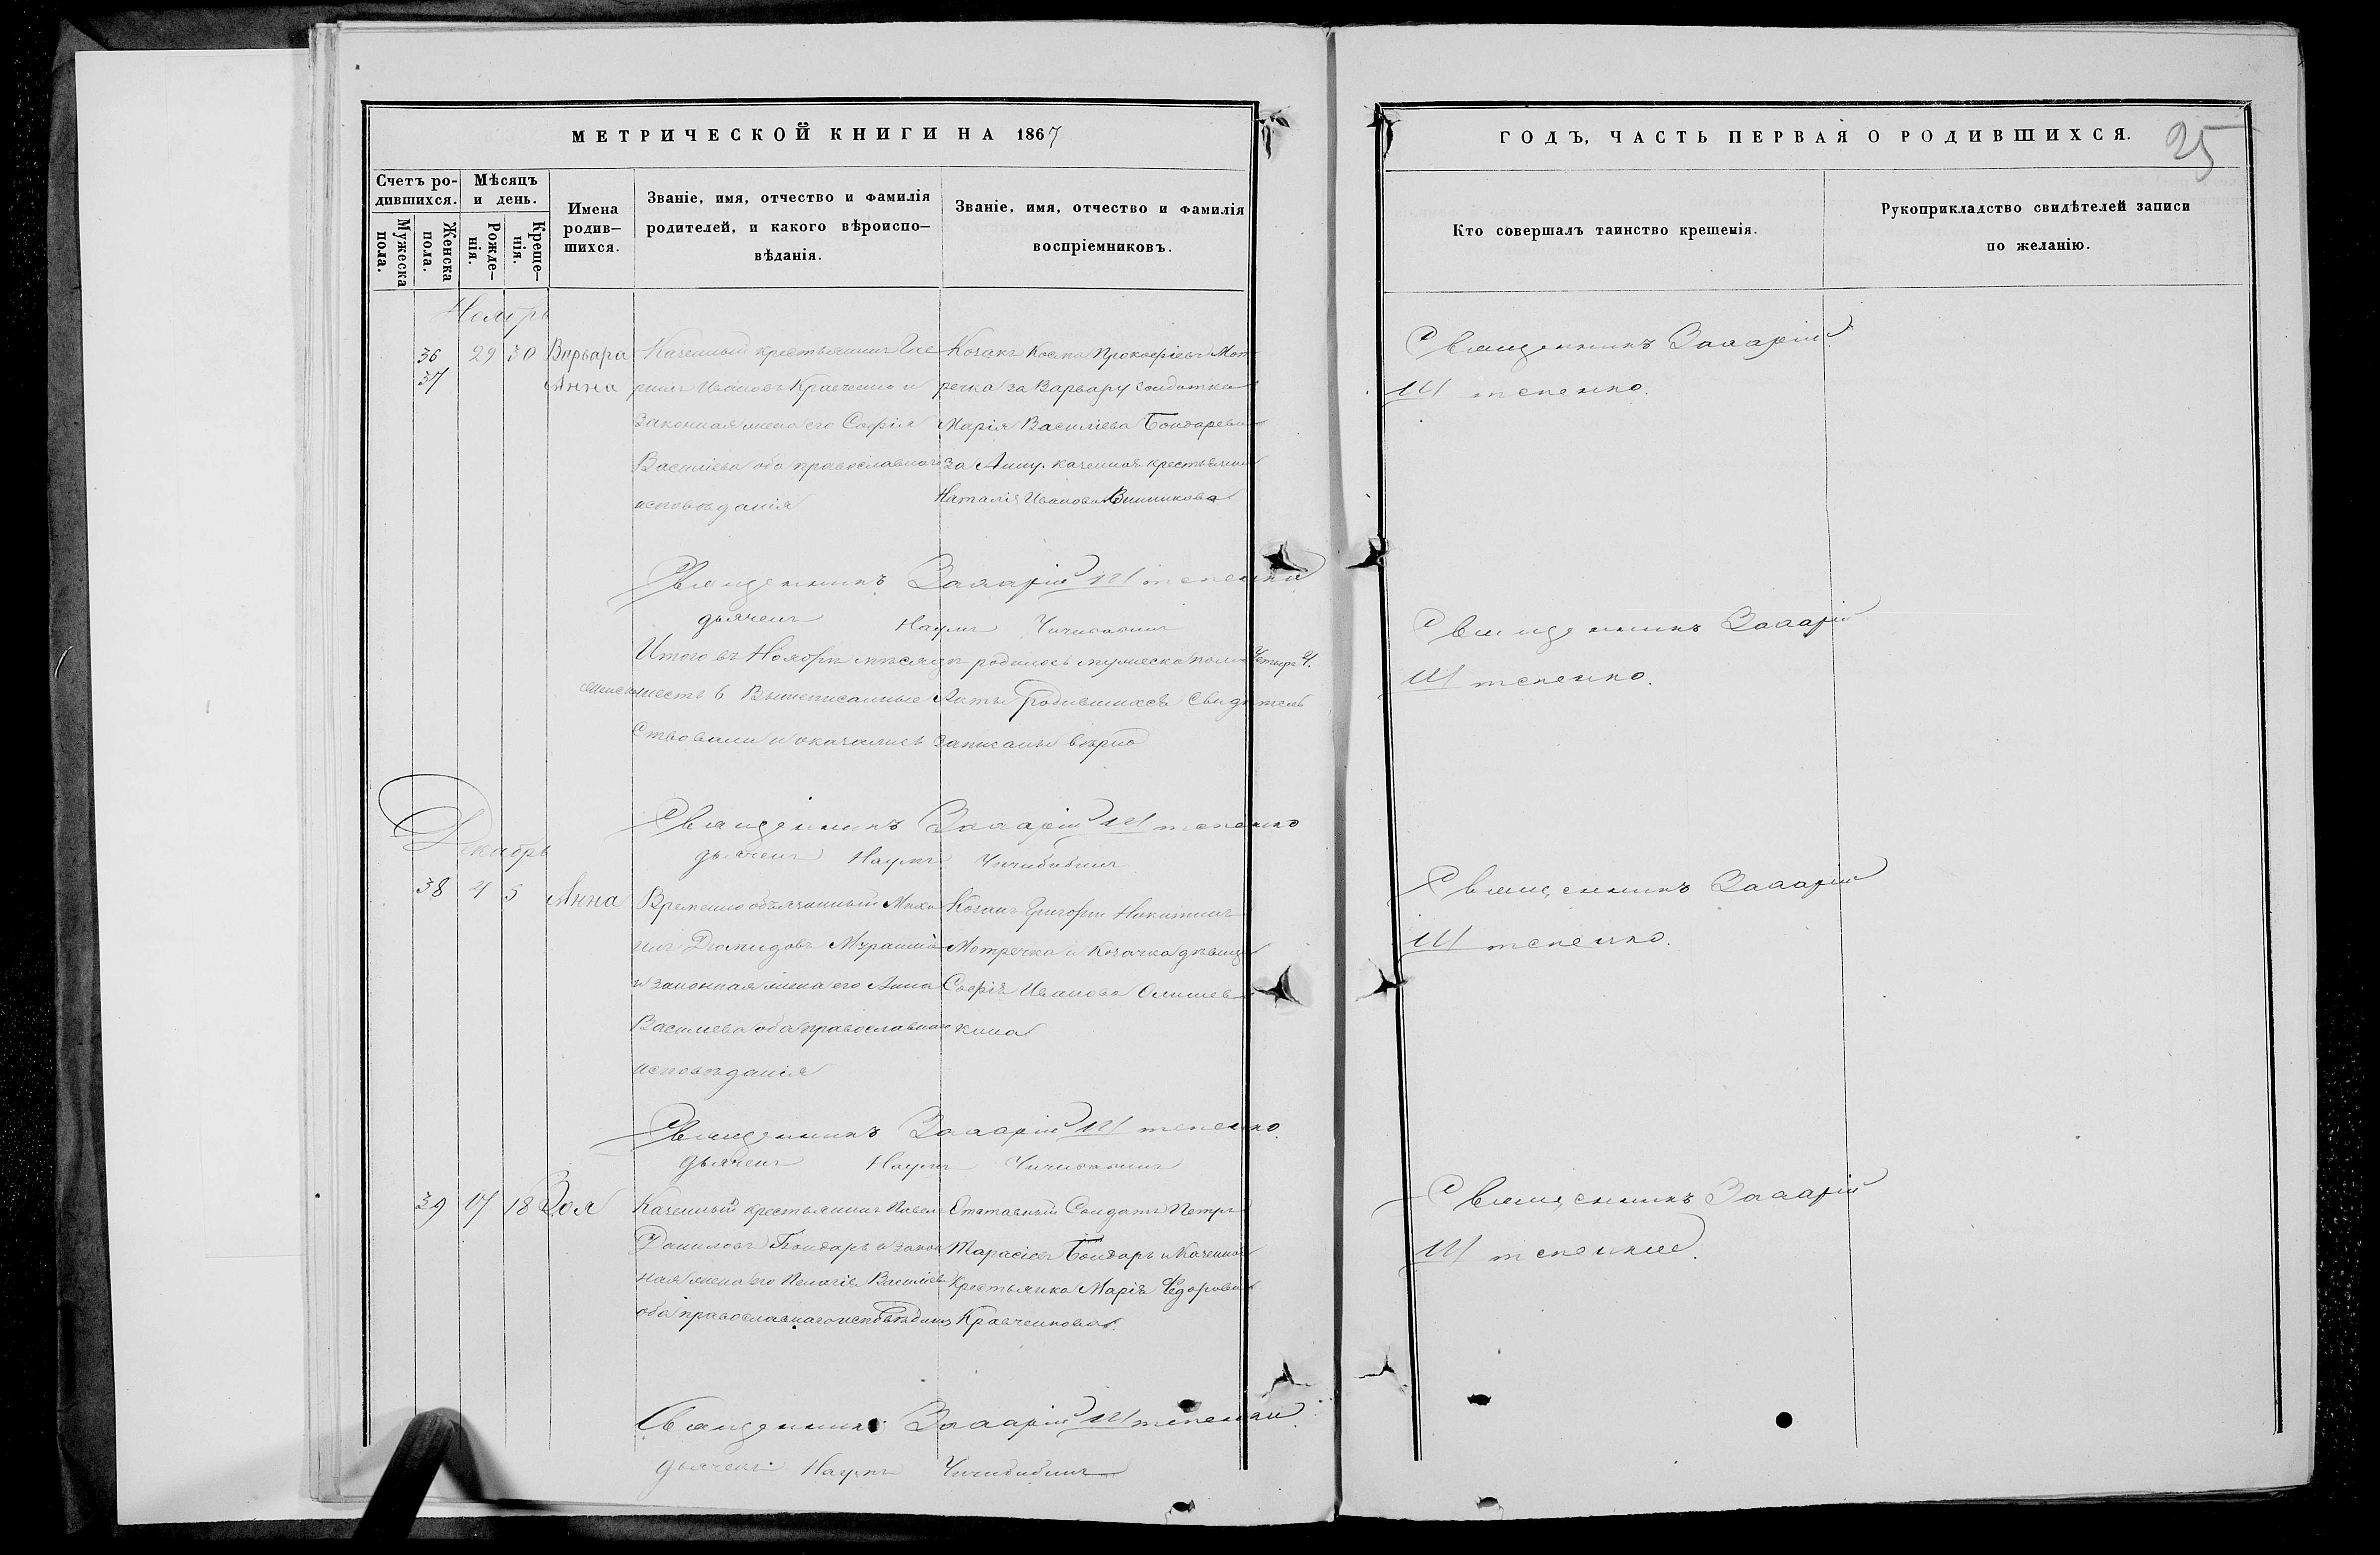 МЕТРИЧЕСКОЙ КНИГИ НА 1867
Счетъ ро-
дившихся.
Мужеска
пола.
Женска
пола.
Мѣсяцъ
и день.
Рожде-
нія.
Креще-
нія.
Имена
родив-
шихся.
Званіе, имя, отчество и фамилія
родителей, и какого вѣроиспо-
вѣданія.
Званіе, имя, отчество и фамилія
воспріемниковъ.
Ноябрь
36
37
29
30
Варвара
Анна
Казенный крестьянинъ
Ивановъ Кравченко и
Законная жена его Софія
Василіева оба православнаго
исповѣданія
Козакъ Косма Прокофіевъ Мот
речка за Варвару солдатка
Марія Василіева Бондарева
За Анну. казенная крестьянка
Наталія Иванова Винникова
Священникъ Захарій Штепенко
дьячекъ Наумъ
Итого въ Ноябрѣ мѣсяцѣ родилось мужеска пола Четыре 4.
женска шесть 6 Вышеписанные Акты родившихся Свидѣтель
ствовали и оказались записаны вѣрно
Священникъ Захарій Штепенко
дьячекъ Наумъ
Декабрь
38
4
5
Анна
Временно обязанный Миха
илъ Демидовъ
и законная жена его Анна
Василіева оба православнаго
исповѣданія
Козакъ Григорій Никитинъ
Мотречка и Козачка дѣвица
Софія Иванова
кина
Священникъ Захарій Штепенко.
дьячекъ Наумъ
39
17
18
Зоя
Казенный крестьянинъ Павелъ
Даниловъ Бондарь и закон
ная жена его Пелагія Василіев
оба православнаго исповѣданія
Отставный Солдатъ Петръ
Тарасіевъ Бондарь и Казенная
Крестьянка Марія Федорова
Кравченкова.
Священникъ Захарій Штепенко
дьячекъ Наумъ
ГОДЪ, ЧАСТЬ ПЕРВАЯ О РОДИВШИХСЯ.
25
Кто совершалъ таинство крещенія.
Рукоприкладство свидѣтелей записи
по желанію.
Священникъ Захарій
Штепенко.
Священникъ Захарій
Штепенко.
Священникъ Захарій
Штепенко.
Священникъ Захарій
Штепенко.